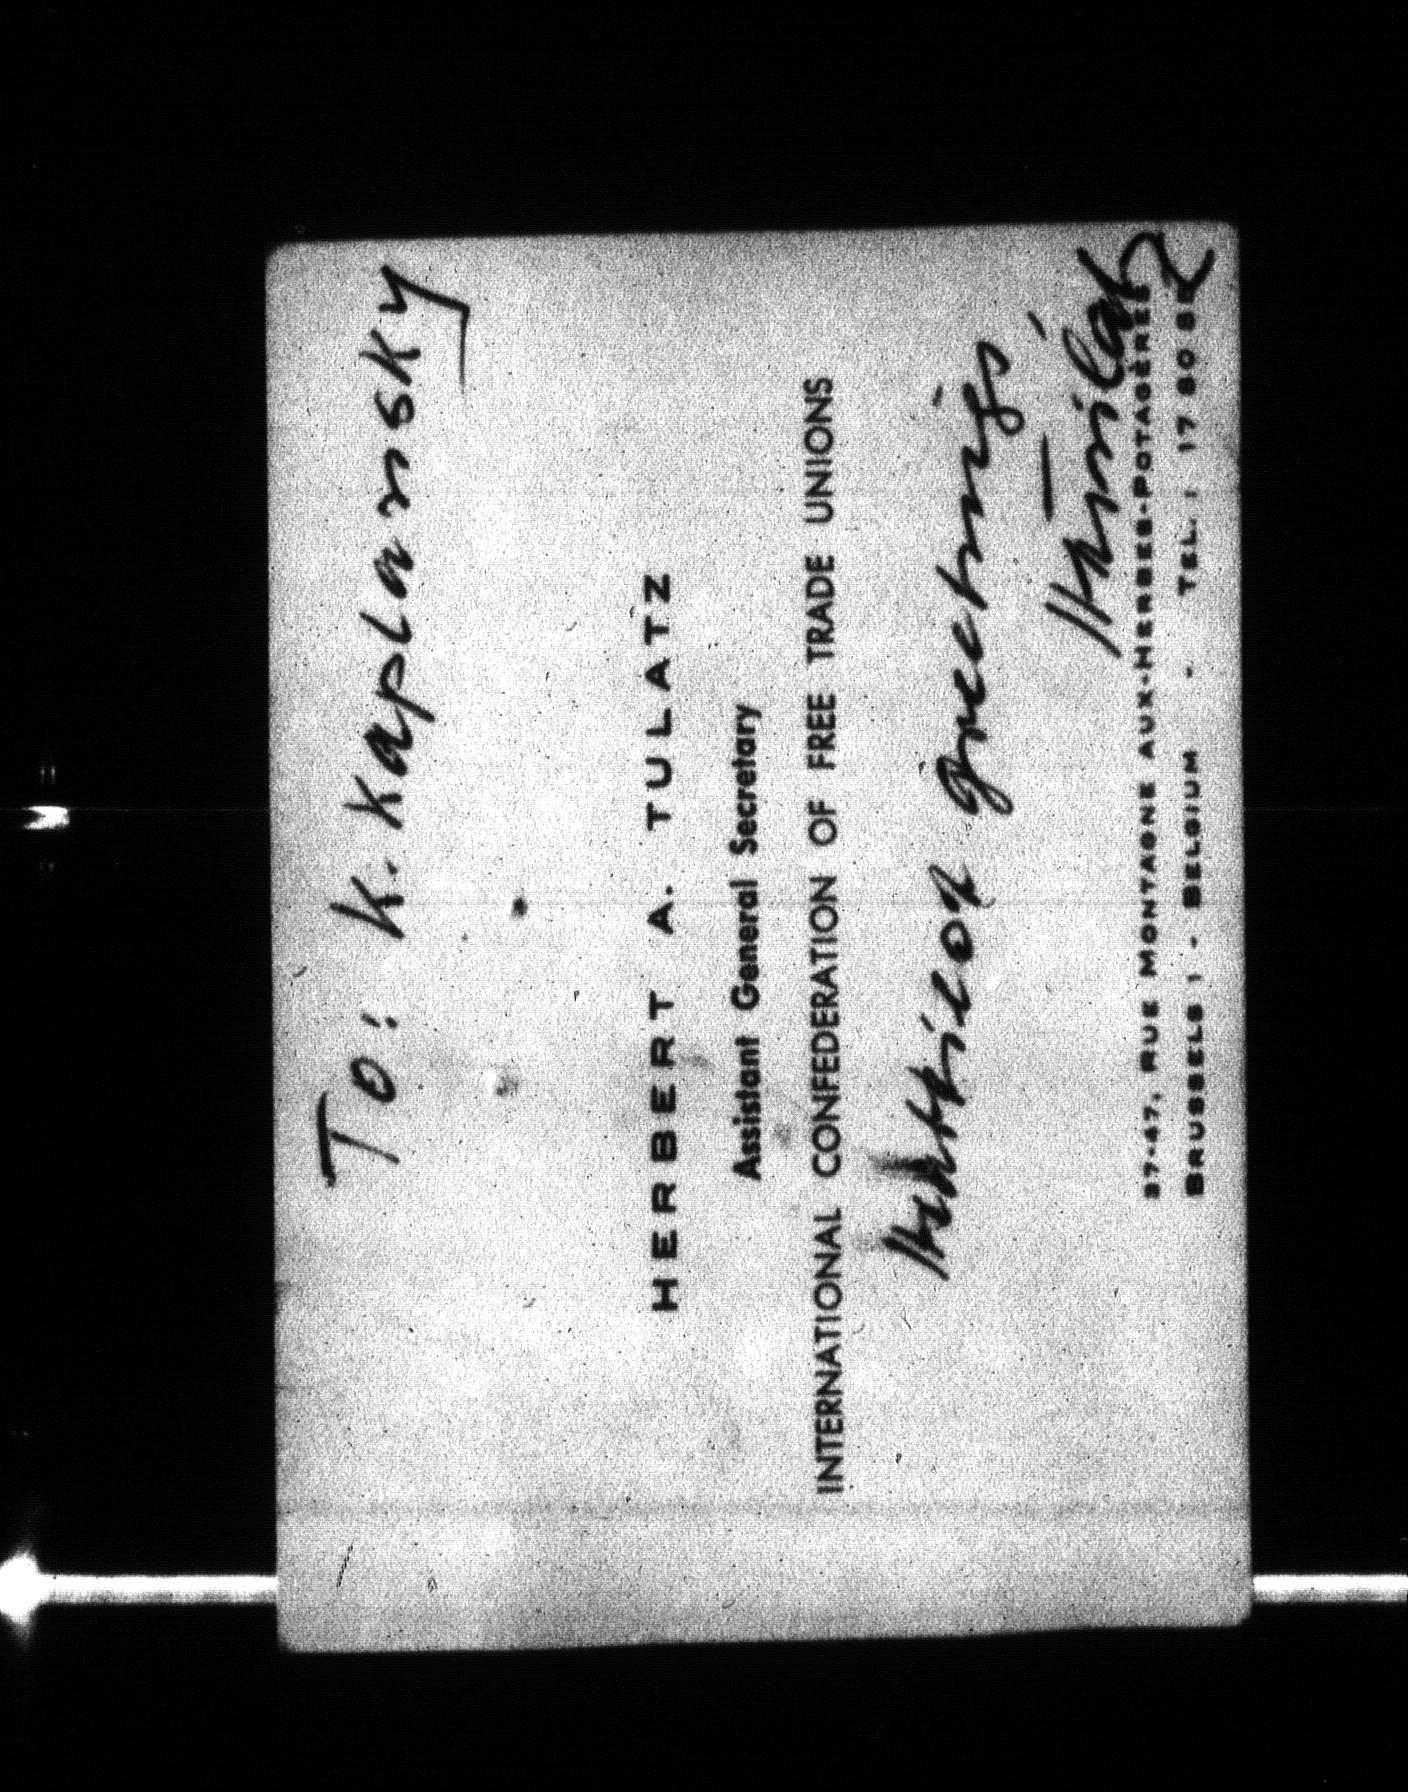 To: K. Kaplansky
HERBERT A. TULATZ
Assistant General Secretary
INTERNATIONAL CONFEDERATION OF FREE TRADE UNIONS
greetings
37-47, RUE MONTAGNE AUX-HERBES-POTAGÈRES
BRUSSELS 1 - BELGIUM - TEL.: 17 80 8